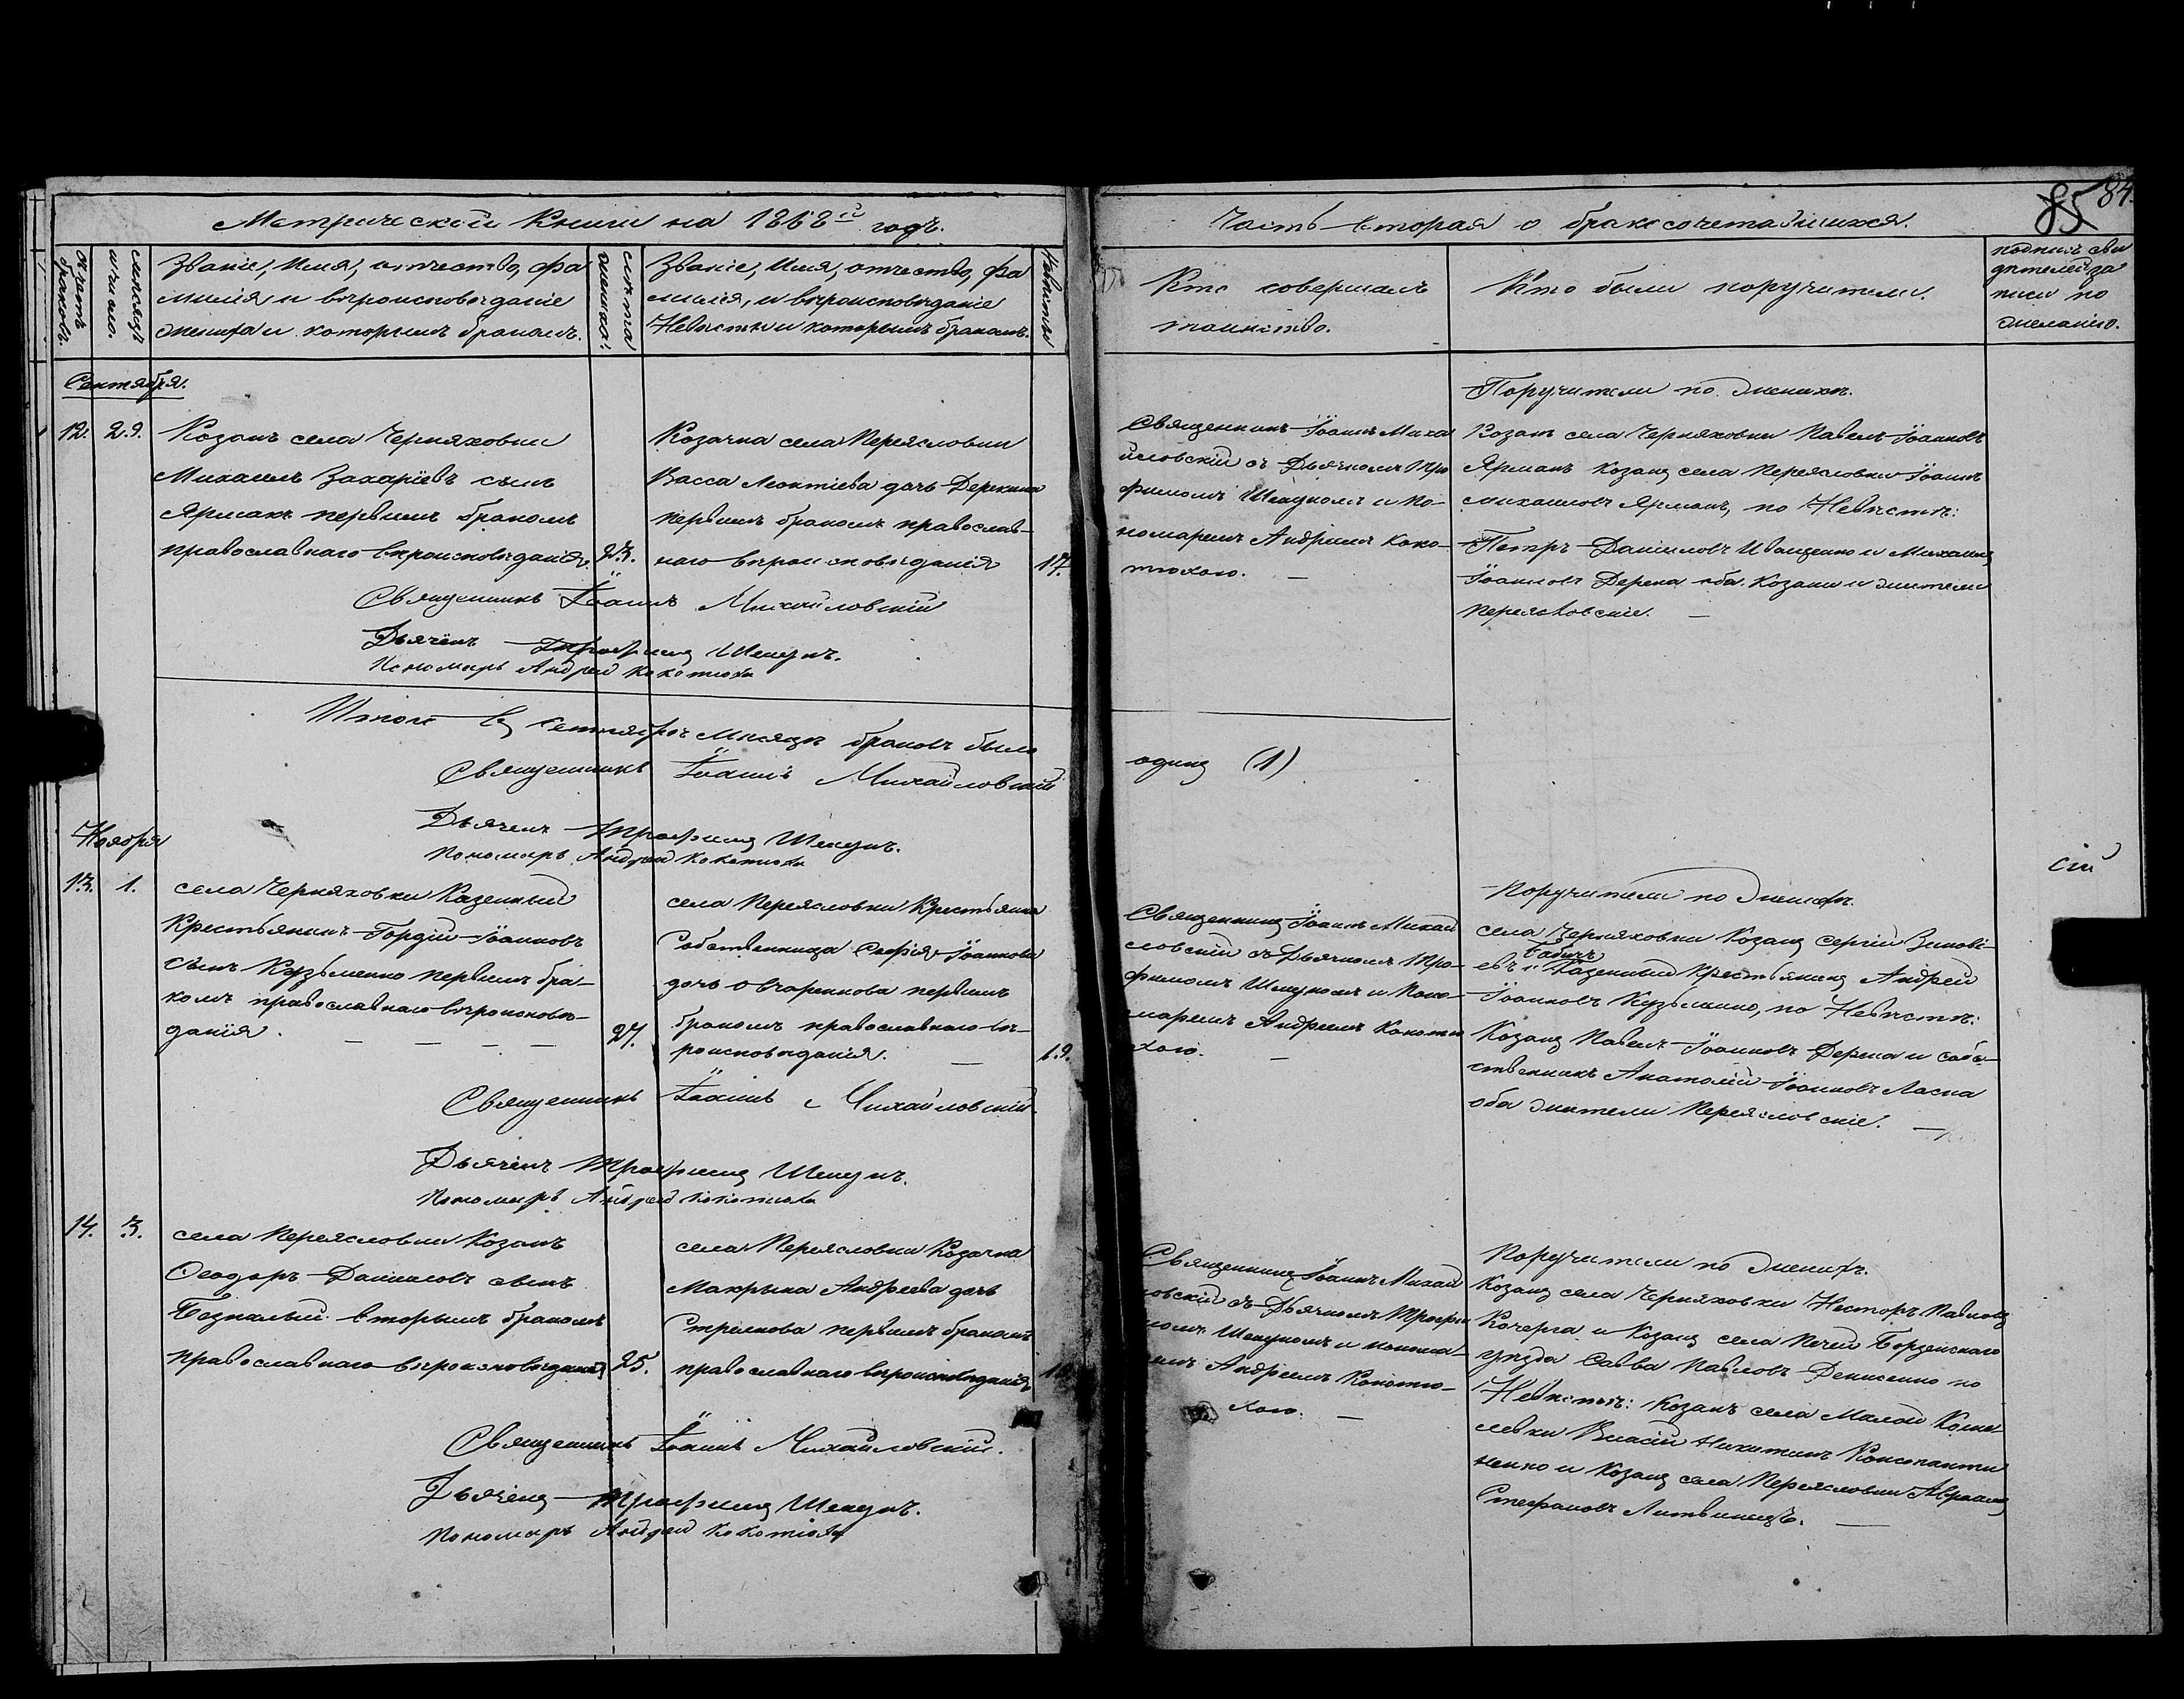 85 84.
Метрической Книги на 1868й годъ.
Часть вторая о бракосочетавшихся.
Счетъ браковъ.
Мѣсяцъ и число.
Званіе, Имя, отчество, фа
милія и вѣроисповѣданіе
жениха и которымъ бракомъ.
Лѣта жениха.
Званіе, Имя, отчество, фа
милія, и вѣроисповѣданіе
Невѣсты и которымъ бракомъ.
Невѣсты
Кто совершалъ
таинство.
Кто были поручители.
подпись сви
дѣтелей за
писи по
желанію.
Сентября.
12. 29.
Козакъ села Черняховки
Михаилъ Захаріевъ сынъ
Ярмакъ первымъ бракомъ
православнаго вѣроисповѣданія. 23.
Козачка села Переясловки
Васса Леонтіева дочь Дерекина
первымъ бракомъ православ-
наго вѣроисповѣданія 17.
Священникъ Іоаннъ Миха
йловскій съ Дьячкомъ Тро
фимомъ Шекуномъ и По-
номаремъ Андреемъ Коко-
тюхою. —
Поручители по женихѣ.
Козакъ села Черняховки Павелъ Іоанновъ
Ярмакъ Козакъ села Переясловки Іоаннъ
Михаиловъ Ярмакъ, по Невѣстѣ:
Петръ Даниловъ Иващенко и Михаилъ
Іоанновъ Дерека оба Козаки и жители
Переясловскіе. —
Священникъ Іоаннъ Михайловскій
Дьячекъ Трофимъ Шекунъ.
Пономарь Андрей Кокотюха
Итого въ Сентябрѣ Мѣсяцѣ браковъ было
одинъ (1)
Священникъ Іоаннъ Михайловскій
Дьячекъ Трофимъ Шекунъ.
Пономарь Андрей Кокотюха
Ноября
13. 1.
села Черняховки Казенный
Крестьянинъ Гордій Іоанновъ
сынъ Кузьменко первымъ бра-
комъ православнаго вѣроисповѣ-
данія. — — — — 27.
села Переясловки Крестьянка
Собственница Софія Іоаннова
дочь Овчаренкова первымъ
бракомъ православнаго вѣ-
роисповѣданія. — 19.
Священникъ Іоаннъ Михай
ловскій съ Дьячкомъ Тро-
фимомъ Шекуномъ и Поно-
маремъ Андреемъ Кокотю
хою. —
Поручители по женихѣ.
села Черняховки Козакъ Сергій Зиновi-
Бабичъ
евъ и Казенный Крестьянинъ Андрей
Іоанновъ Кузьменко, по Невѣстѣ:
Козакъ Павелъ Іоанновъ Дерека и соб-
ственникъ Анатолій Іоанновъ Ласка
оба жители Переясловскіе. —
сій
Священникъ Іоаннъ Михайловскій.
Дьячекъ Трофимъ Шекунъ.
Пономарь Андрей Кокотюха
14. 3.
села Переясловки Козакъ
Ѳеодоръ Даниловъ сынъ
Безпалый вторымъ бракомъ
православнаго вѣроисповѣданія 25.
села Переясловки Козачка
Макрына Андреева дочь
Стрилкова первымъ бракомъ
православнаго вѣроисповѣданія.
Священникъ Іоаннъ Михай
ловскій съ Дьячкомъ Трофи
момъ Шекуномъ и понома-
емъ Андреемъ Кокотю-
хою. —
Поручители по женихѣ.
Козакъ села Черняховки Несторъ Павловъ
Кочерга и Козакъ села Печей Борзенскаго
уѣзда Савва Павловъ Денисенко по
Невѣстѣ: Козакъ села Малой Коше-
левки Власій Никитинъ Константи
ненко и Козакъ села Переясловки Авраамъ
Стефановъ Литвинецъ. —
Священникъ Іоаннъ Михайловскій.
Дьячекъ Трофимъ Шекунъ.
Пономарь Андрей Кокотюха